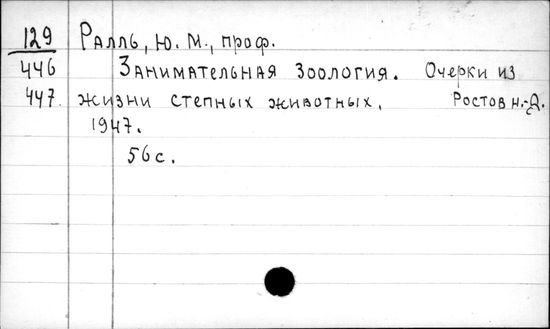 129 Ралль, Ю. М., проф.
446 Занимательная зоология. Очерки из
447. жизни степных животных. Ростов н.-Д.
1947.
56 с.